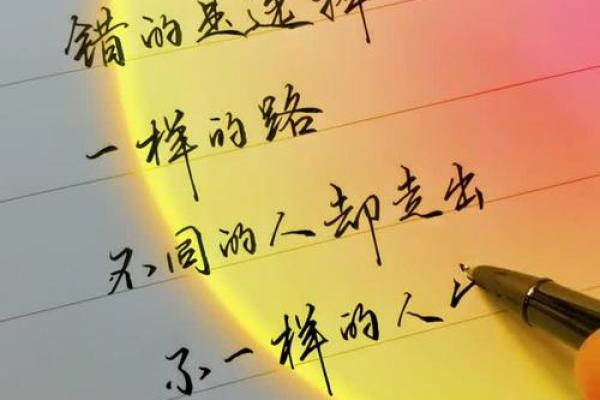 错的是选择
一样的路
不同的人却走出
不一样的人